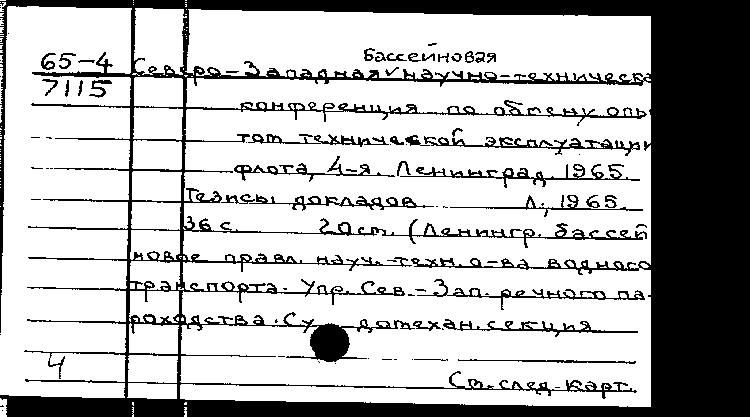 бассейновая
65-4 Северо-Западная научно-техническа
7115
конференция по обмену опы
том технической эксплуатации
флота, 4-я. Ленинград. 1965.
Тезисы докладов. Л., 1965.
36 с. 20 см. (Ленингр. бассей
новое правл. науч.-техн. о-ва водного
транспорта. Упр. Сев.-Зап. речного па-
роходства. Су дотехан. секция
4
См. след. карт.